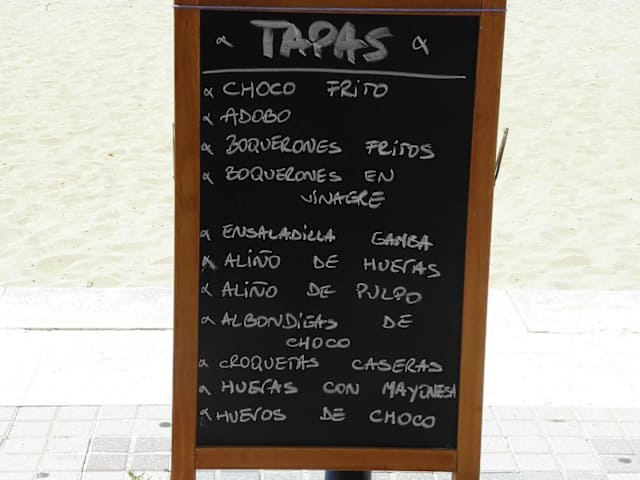 TAPAS
CHOCO FRITO
ADOBO
BOQUERONES FRITOS
BOQUERONES EN
VINAGRE
ENSALADILLA GAMBA
ALIÑO DE HUEVAS
ALIÑO DE PULPO
ALBONDIGAS DE
CHOCO
CROQUETAS CASERAS
HUEVAS CON MAYONESA
HUEVOS DE CHOCO